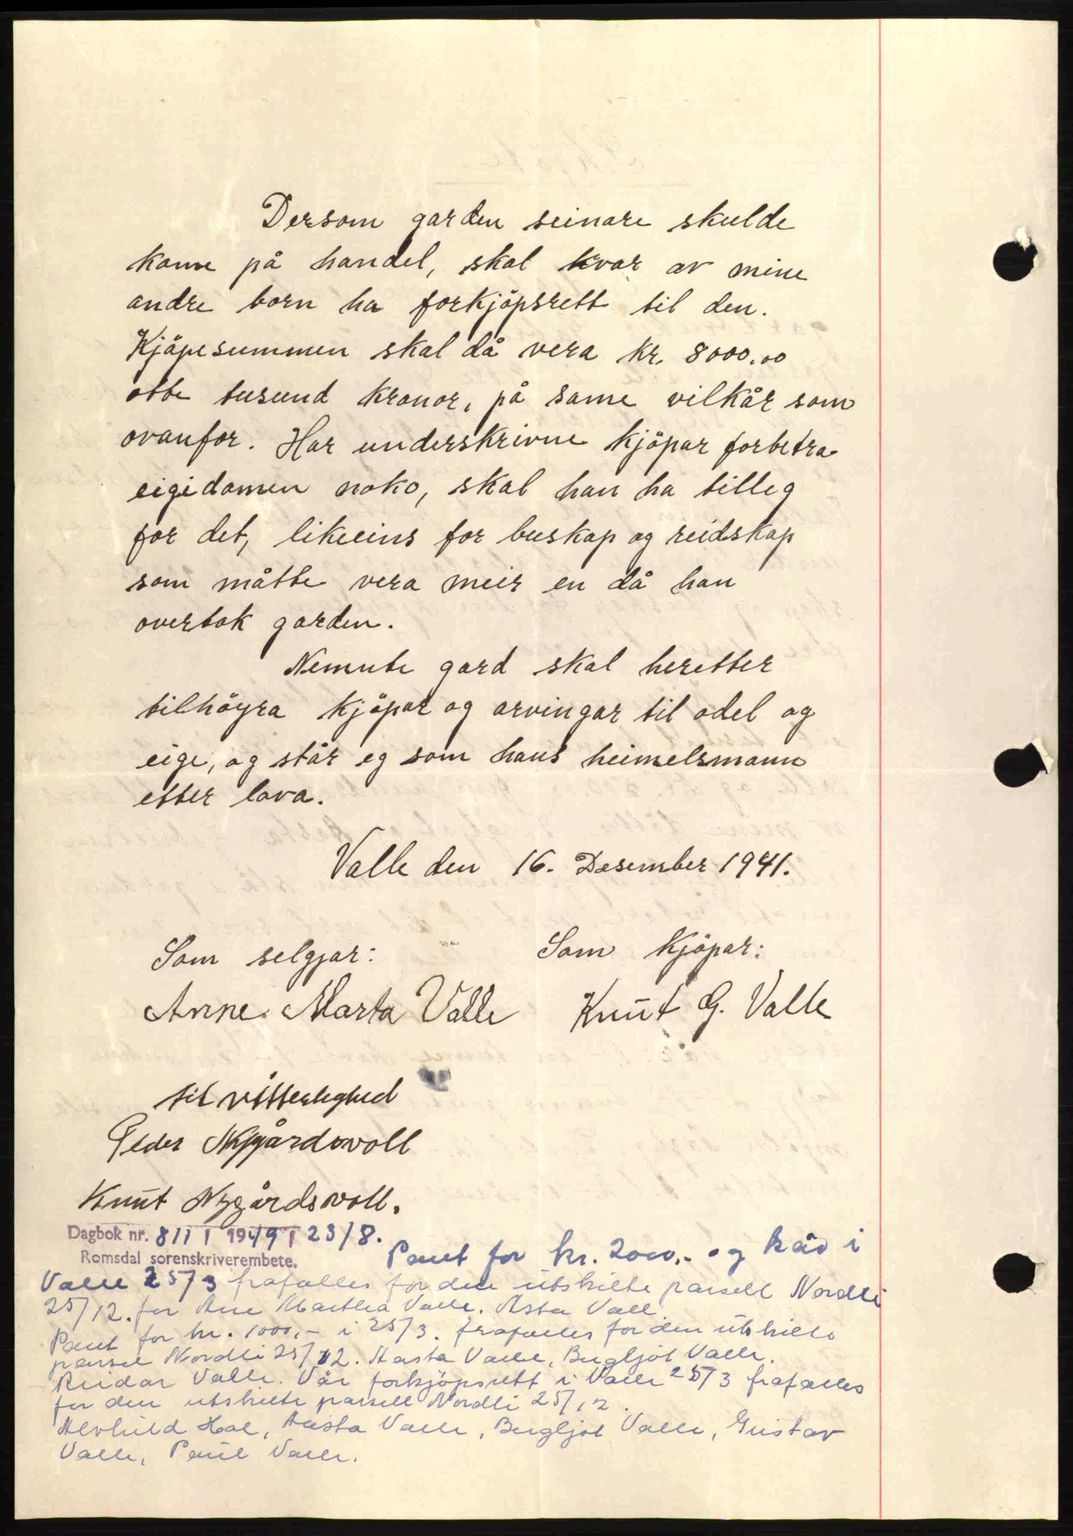 Dersom garden seinare skulde
kome på handel, skal kvar av mine
andre born ha forkjöpsrett til den.
Kjöpesummen skal då vera kr. 8000.00
otte tusund kronor, på same vilkår som
ovanfor. Har underskrivne kjöpar forbetra
eigidomen noko, skal han ha tilleg
for det, likeeins for buskap og reidskap
som måtte vera meir en då han
overtok garden.
Nemnte gard skal heretter
tilhöyra kjöpar og arvingar til odel og
eige, og står eg som hans heimelsmann
etter lova.
Valle den 16. Desember 1941.
Som selgjar: Som kjöpar:
Anne Marta Valle Knut G. Valle
til vitterlighed
Peder Nygårdsvoll
Knut Nygårdsvoll.
Dagbok nr. 811 / 1949 / 23/8.
Romsdal sorenskriverembete.
Pant for kr. 2000.- og kår i
Valle 25/3 frafalles for den utskilte parsell Nordli
25/12. for Ane Martha Valle. Asta Valle
Pant for kr. 1000,- i 25/3. frafalles for den utskilte
parsel Nordli 25/12. Aasta Valle, Bergljot Valle.
Reidar Valle. Vår forkjöpsrett i Valle 25/3 frafalles
for den utskilte parsell Nordli 25/12.
Alvhild Hol, Aasta Valle, Bergljot Valle, Gustav
Valle, Paul Valle.